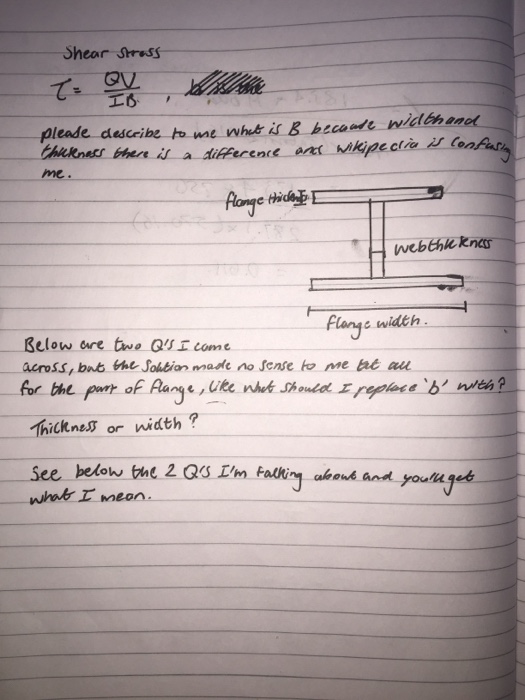 Shear Stress
τ = QV / IB ,
please describe to me what is B because width and
thickness there is a difference and wikipedia is confusing
me.
flange thickness
web thickness
flange width.
Below are two Q's I came
across, but the Solution made no sense to me at all
for the part of flange, like what should I replace 'b' with?
Thickness or width?
See below the 2 Q's I'm talking about and you'll get
what I mean.